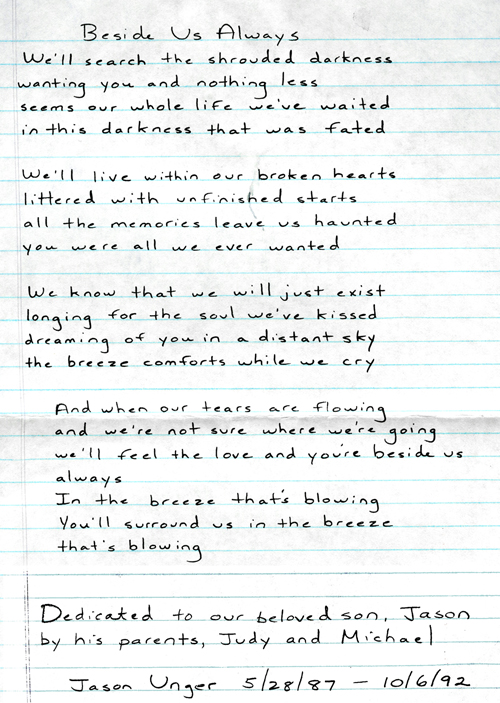 Beside Us Always
We'll search the shrouded darkness
wanting you and nothing less
seems our whole life we've waited
in this darkness that was fated
We'll live within our broken hearts
littered with unfinished starts
all the memories leave us haunted
you were all we ever wanted
We know that we will just exist
longing for the soul we've kissed
dreaming of you in a distant sky
the breeze comforts while we cry
And when our tears are flowing
and we're not sure where we're going
we'll feel the love and you're beside us
always
In the breeze that's blowing
You'll surround us in the breeze
that's blowing
Dedicated to our beloved son, Jason
by his parents, Judy and Michael
Jason Unger 5/28/87 - 10/6/92